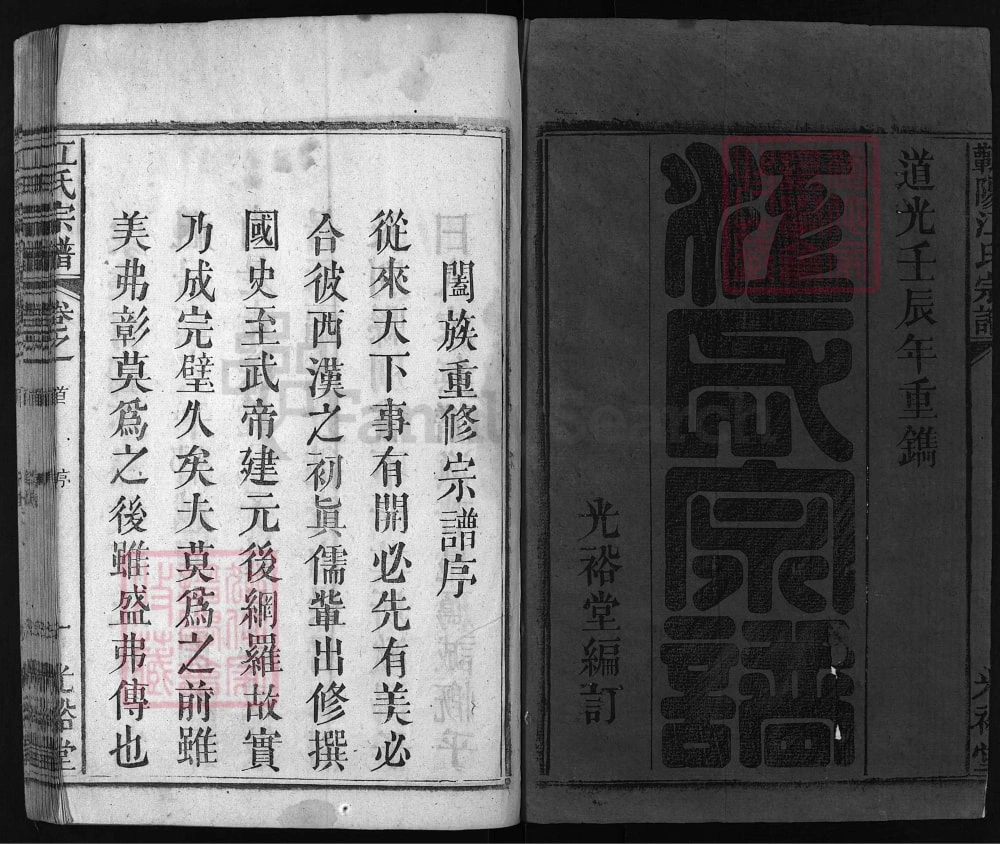 蘄陽江氏宗譜
光裕堂
道光壬辰年重鐫
江氏宗譜
光裕堂編訂
闔族重修宗譜序
從來天下事有開必先有美必
合彼西漢之初眞儒輩出修撰
國史至武帝建元後網羅故實
乃成完璧久矣夫莫爲之前雖
美弗彰莫爲之後雖盛弗傳也
江氏宗譜
卷之一
首
序
一
光裕堂